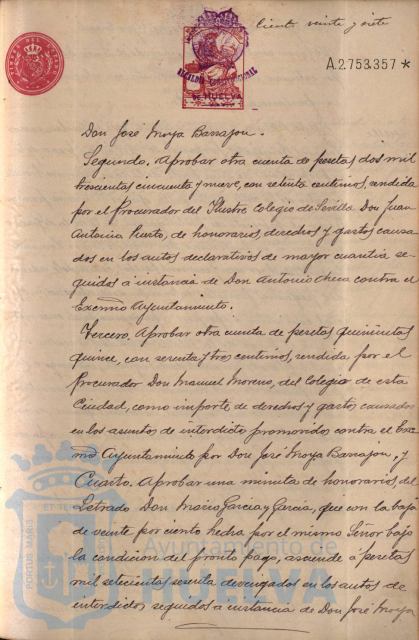 Ciento veinte y siete
ALCALDIA CONSTITUCIONAL
DE HUELVA
A.2.753.357 *
Don José Moya Barrajon.
Segundo. Aprobar otra cuenta de pesetas dos mil
trescientas cincuenta y nueve, con setenta centimos, rendida
por el Procurador del Ilustre Colegio de Sevilla Don Juan
Antonio Puerto, de honorarios, derechos y gastos causa-
dos en los autos declarativos de mayor cuantia se-
guidos a instancia de Don Antonio Checa contra el
Excmo Ayuntamiento.
Tercero. Aprobar otra cuenta de pesetas quinientas
quince, con sesenta y tres centimos, rendida por el
Procurador Don Manuel Moreno, del Colegio de esta
Ciudad, como importe de derechos y gastos causados
en los asuntos de interdicto promovidos contra el Exc-
mo Ayuntamiento por Don José Moya Barrajon, y
Cuarto. Aprobar una minuta de honorarios del
Letrado Don Mario Garcia y Garcia, que con la baja
de veinte por ciento hecha por el mismo Señor bajo
la condicion del pronto pago, asciende a pesetas
mil setecientas sesenta devengados en los autos de
interdictos seguidos a instancia de Don José Moya
PORTUS MARIS ET TERRAE
Ayuntamiento de
HUELVA